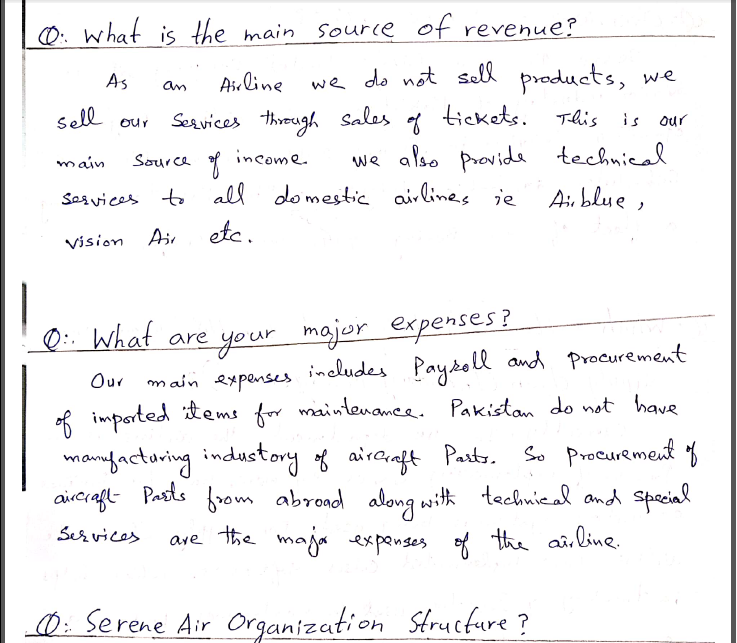 Q:. What is the main source of revenue?
As an Airline we do not sell products, we
sell our Services through sales of tickets. This is our
main Source of income. we also provide technical
Services to all domestic airlines ie Airblue,
vision Air etc.
Q:. What are your major expenses?
Our main expenses includes Payroll and Procurement
of imported items for maintenance. Pakistan do not have
manufacturing industory of aircraft Parts. So Procurement of
aircraft Parts from abroad along with technical and special
Services are the major expenses of the airline.
Q:. Serene Air Organization Structure?